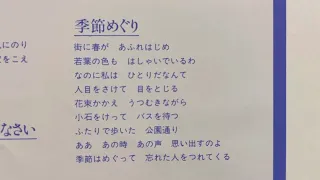 にのり
をこえ
なさい
季節めぐり
街に春が あふれはじめ
若葉の色も はしゃいでいるわ
なのに私は ひとりだなんて
人目をさけて 目をとじる
花束かかえ うつむきながら
小石をけって バスを待つ
ふたりで歩いた 公園通り
ああ あの時 あの声 思い出すのよ
季節はめぐって 忘れた人をつれてくる